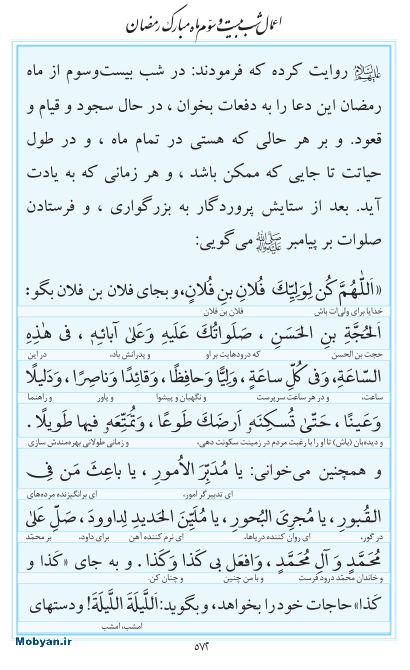 اعمال شب بیست و سوّم ماه مبارک رمضان
علیهم‌السلام روایت کرده که فرمودند: در شب بیست‌وسوم از ماه
رمضان این دعا را به دفعات بخوان ، در حال سجود و قیام و
قعود. و بر هر حالی که هستی در تمام ماه ، و در طول
حیاتت تا جایی که ممکن باشد ، و هر زمانی که به یادت
آید. بعد از ستایش پروردگار به بزرگواری ، و فرستادن
صلوات بر پیامبر ﷺ می‌گویی:
«اَللّٰهُمَّ کُن لِوَلِیِّكَ فُلانِ بنِ فُلانٍ، و بجای فلان بن فلان بگو:
خدایا برای ولی‌ات باش فلان بن فلان
اَلحُجَّةِ بنِ الحَسَنِ ، صَلَواتُكَ عَلَیهِ وَعَلیٰ آبائِهِ، فی هٰذِهِ
حجت بن الحسن که درودهایت بر او و پدرانش باد، در این
السّاعَةِ، وَفی کُلِّ ساعَةٍ ، وَلِیًّا وَحافِظًا ، وَقائِدًا وَناصِرًا ، وَدَلیلًا
ساعت، و در هر ساعت سرپرست و نگهبان و پیشوا و یاور و راهنما
وَعَینًا ، حَتّیٰ تُسکِنَهُ اَرضَكَ طَوعًا ، وَتُمَتِّعَهُ فیها طَویلًا .
و دیده‌بان (باش) تا او را با رغبت مردم در زمینت سکونت دهی، و زمانی طولانی بهره‌مندش سازی
و همچنین می‌خوانی: یا مُدَبِّرَ الأُمورِ ، یا باعِثَ مَن فِی
ای تدبیرگر امور، ای برانگیزنده مرده‌های
القُبورِ ، یا مُجرِیَ البُحورِ ، یا مُلَیِّنَ الحَدیدِ لِداوودَ ، صَلِّ عَلیٰ
در گور، ای روان کننده دریاها، ای نرم کننده آهن برای داود، بر محمّد
مُحَمَّدٍ وَ آلِ مُحَمَّدٍ ، وَافعَل بی کَذا وَکَذا . و به جای «کذا و
و خاندان محمّد درود فرست و با من چنین و چنان کن.
کذا» حاجات خود را بخواهد، و بگوید: اَللَّیلَةَ اللَّیلَةَ! و دستهای
امشب، امشب
۵۷۲
Mobyan.ir